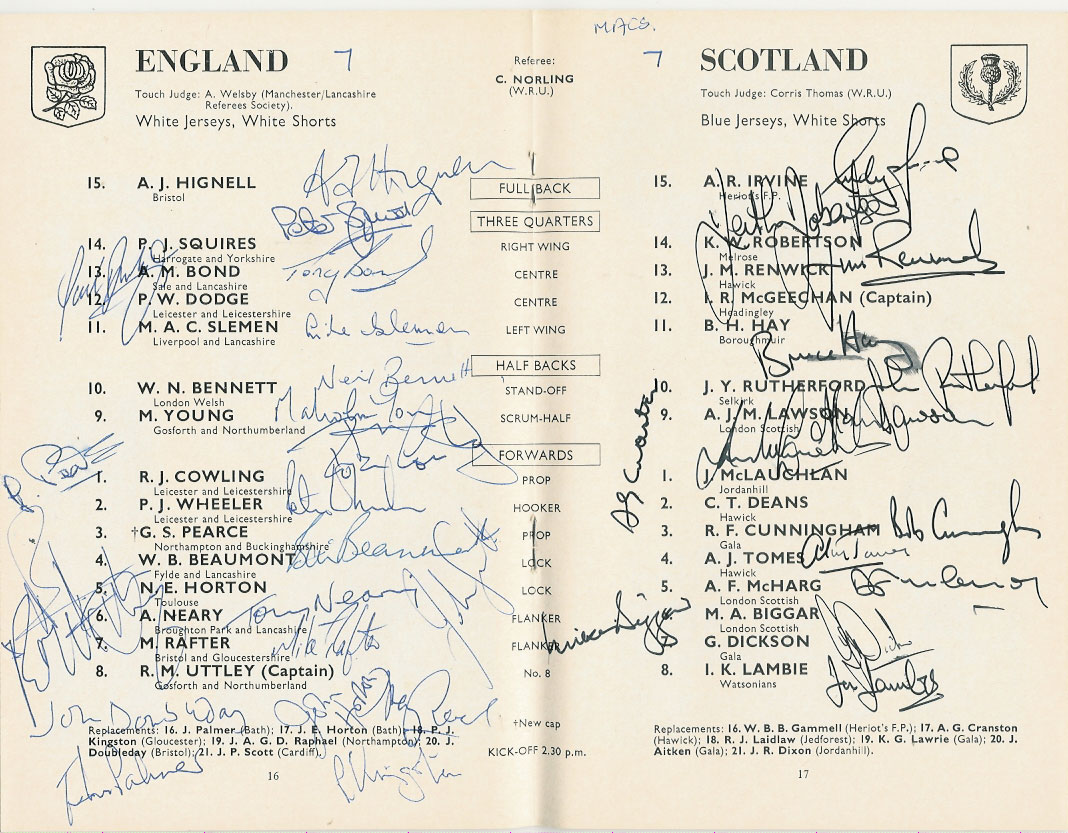 MACS.
ENGLAND 7
Touch Judge: A. Welsby (Manchester/Lancashire
Referees Society).
White Jerseys, White Shorts
Referee:
C. NORLING
(W.R.U.)
7 SCOTLAND
Touch Judge: Corris Thomas (W.R.U.)
Blue Jerseys, White Shorts
15. A. J. HIGNELL
Bristol
A J Hignell
FULL BACK
15. A. R. IRVINE
Heriot's F.P.
Andy Irvine
Peter Squires
THREE QUARTERS
Keith Robertson
14. P. J. SQUIRES
Harrogate and Yorkshire
RIGHT WING
14. K. W. ROBERTSON
Melrose
13. A. M. BOND
Sale and Lancashire
Tony Bond
CENTRE
13. J. M. RENWICK
Hawick
Jim Renwick
12. P. W. DODGE
Leicester and Leicestershire
CENTRE
12. I. R. McGEECHAN (Captain)
Headingley
11. M. A. C. SLEMEN
Liverpool and Lancashire
Mike Slemen
LEFT WING
11. B. H. HAY
Boroughmuir
Bruce Hay
HALF BACKS
10. W. N. BENNETT
London Welsh
Neil Bennett
STAND-OFF
10. J. Y. RUTHERFORD
Selkirk
John Rutherford
9. M. YOUNG
Gosforth and Northumberland
Malcolm Young
SCRUM-HALF
9. A. J. M. LAWSON
London Scottish
Alan Lawson
FORWARDS
1. R. J. COWLING
Leicester and Leicestershire
PROP
1. J. McLAUCHLAN
Jordanhill
2. P. J. WHEELER
Leicester and Leicestershire
Peter Wheeler
HOOKER
2. C. T. DEANS
Hawick
3. †G. S. PEARCE
Northampton and Buckinghamshire
PROP
3. R. F. CUNNINGHAM
Gala
Bob Cunningham
4. W. B. BEAUMONT
Fylde and Lancashire
Bill Beaumont
LOCK
4. A. J. TOMES
Hawick
Alan Tomes
5. N. E. HORTON
Toulouse
LOCK
5. A. F. McHARG
London Scottish
6. A. NEARY
Broughton Park and Lancashire
Tony Neary
FLANKER
6. M. A. BIGGAR
London Scottish
Mike Biggar
7. M. RAFTER
Bristol and Gloucestershire
Mike Rafter
FLANKER
7. G. DICKSON
Gala
8. R. M. UTTLEY (Captain)
Gosforth and Northumberland
No. 8
8. I. K. LAMBIE
Watsonians
Iain Lambie
John Doubleday
John Horton
†New cap
Replacements: 16. J. Palmer (Bath); 17. J. E. Horton (Bath); 18. P. J.
Kingston (Gloucester); 19. J. A. G. D. Raphael (Northampton); 20. J.
Doubleday (Bristol); 21. J. P. Scott (Cardiff).
KICK-OFF 2.30 p.m.
Replacements: 16. W. B. B. Gammell (Heriot's F.P.); 17. A. G. Cranston
(Hawick); 18. R. J. Laidlaw (Jedforest); 19. K. G. Lawrie (Gala); 20. J.
Aitken (Gala); 21. J. R. Dixon (Jordanhill).
John Palmer
P Kingston
16
17